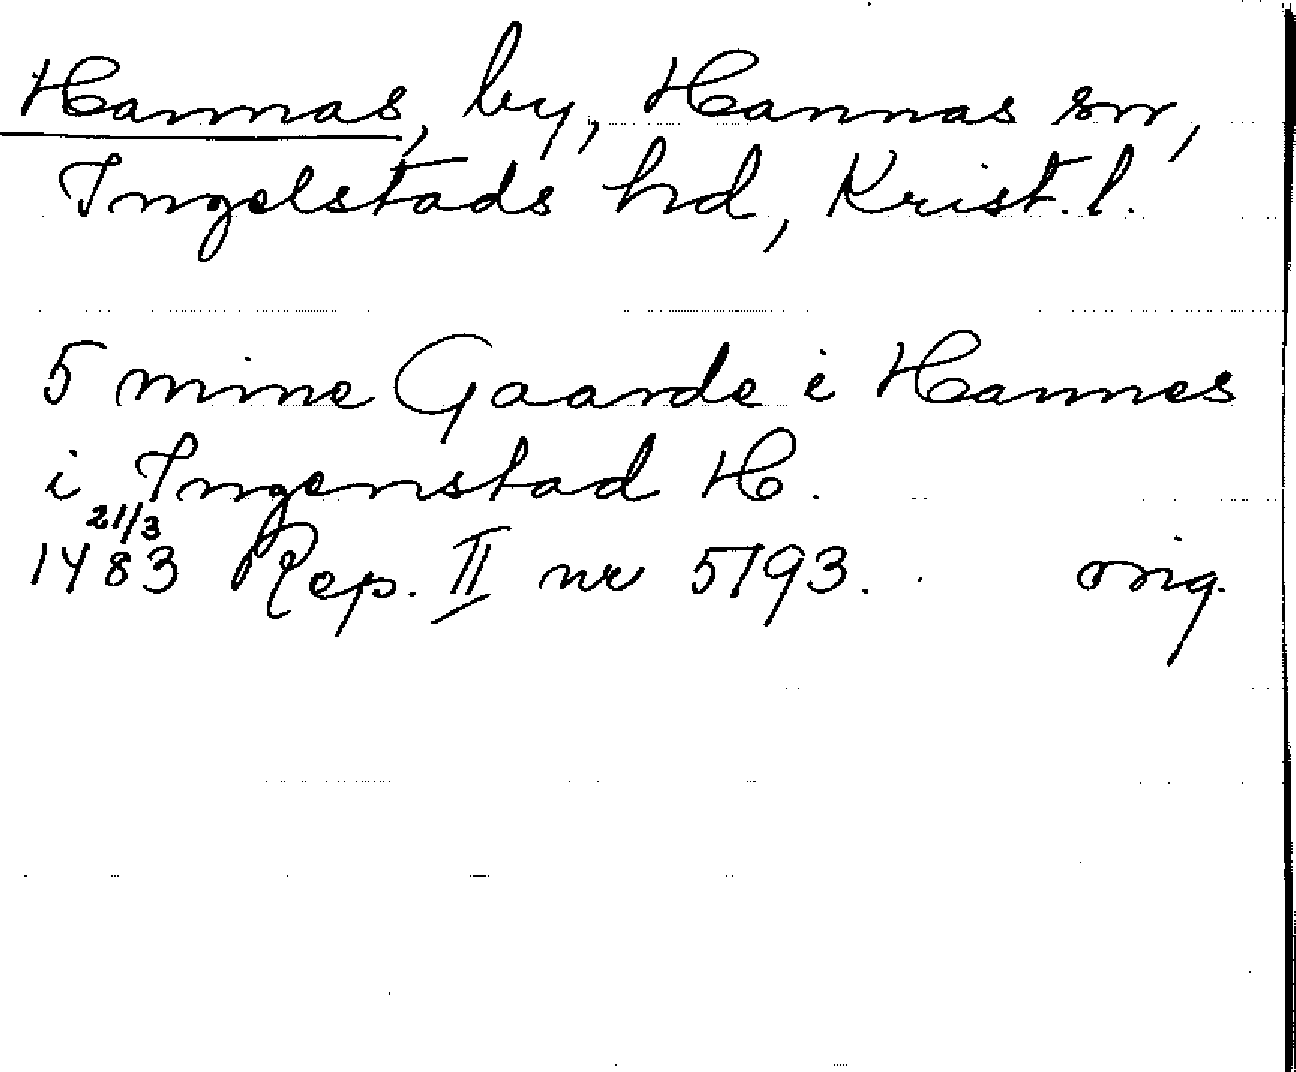 Hannas, by, Hannas sn,
Ingelstads hd, Krist.l.
5 mine Gaarde i Hannes
i Ingenstad H.
21/3
1483 Rep. II nr 5193. orig.